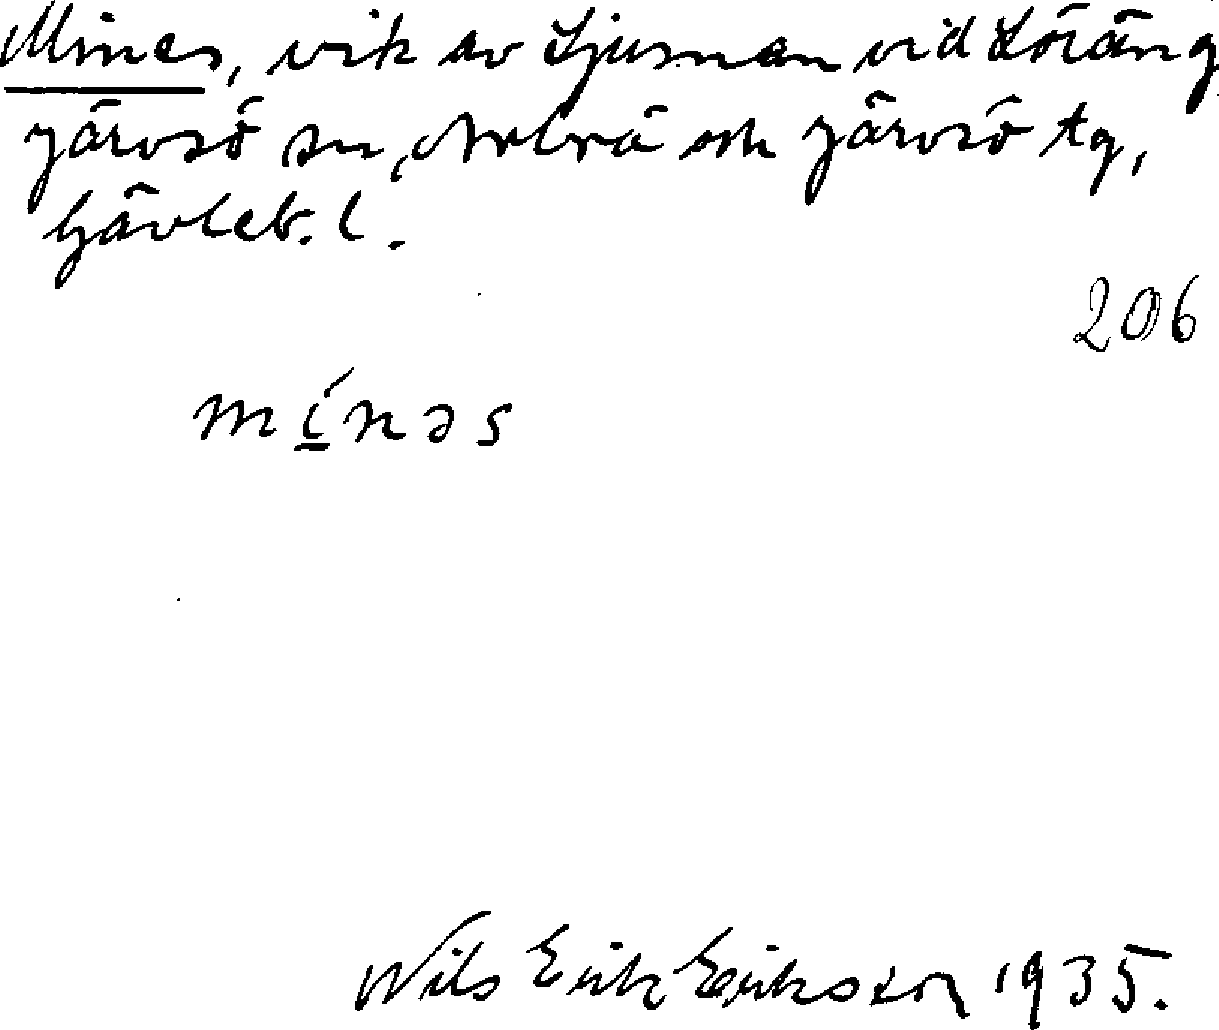 Mines, vik av Ljusnan vid Löräng
Järvsö sn, Arbrå och Järvsö tg,
Gävleb. l.
206
mínəs
Nils Erik Eriksson 1935.